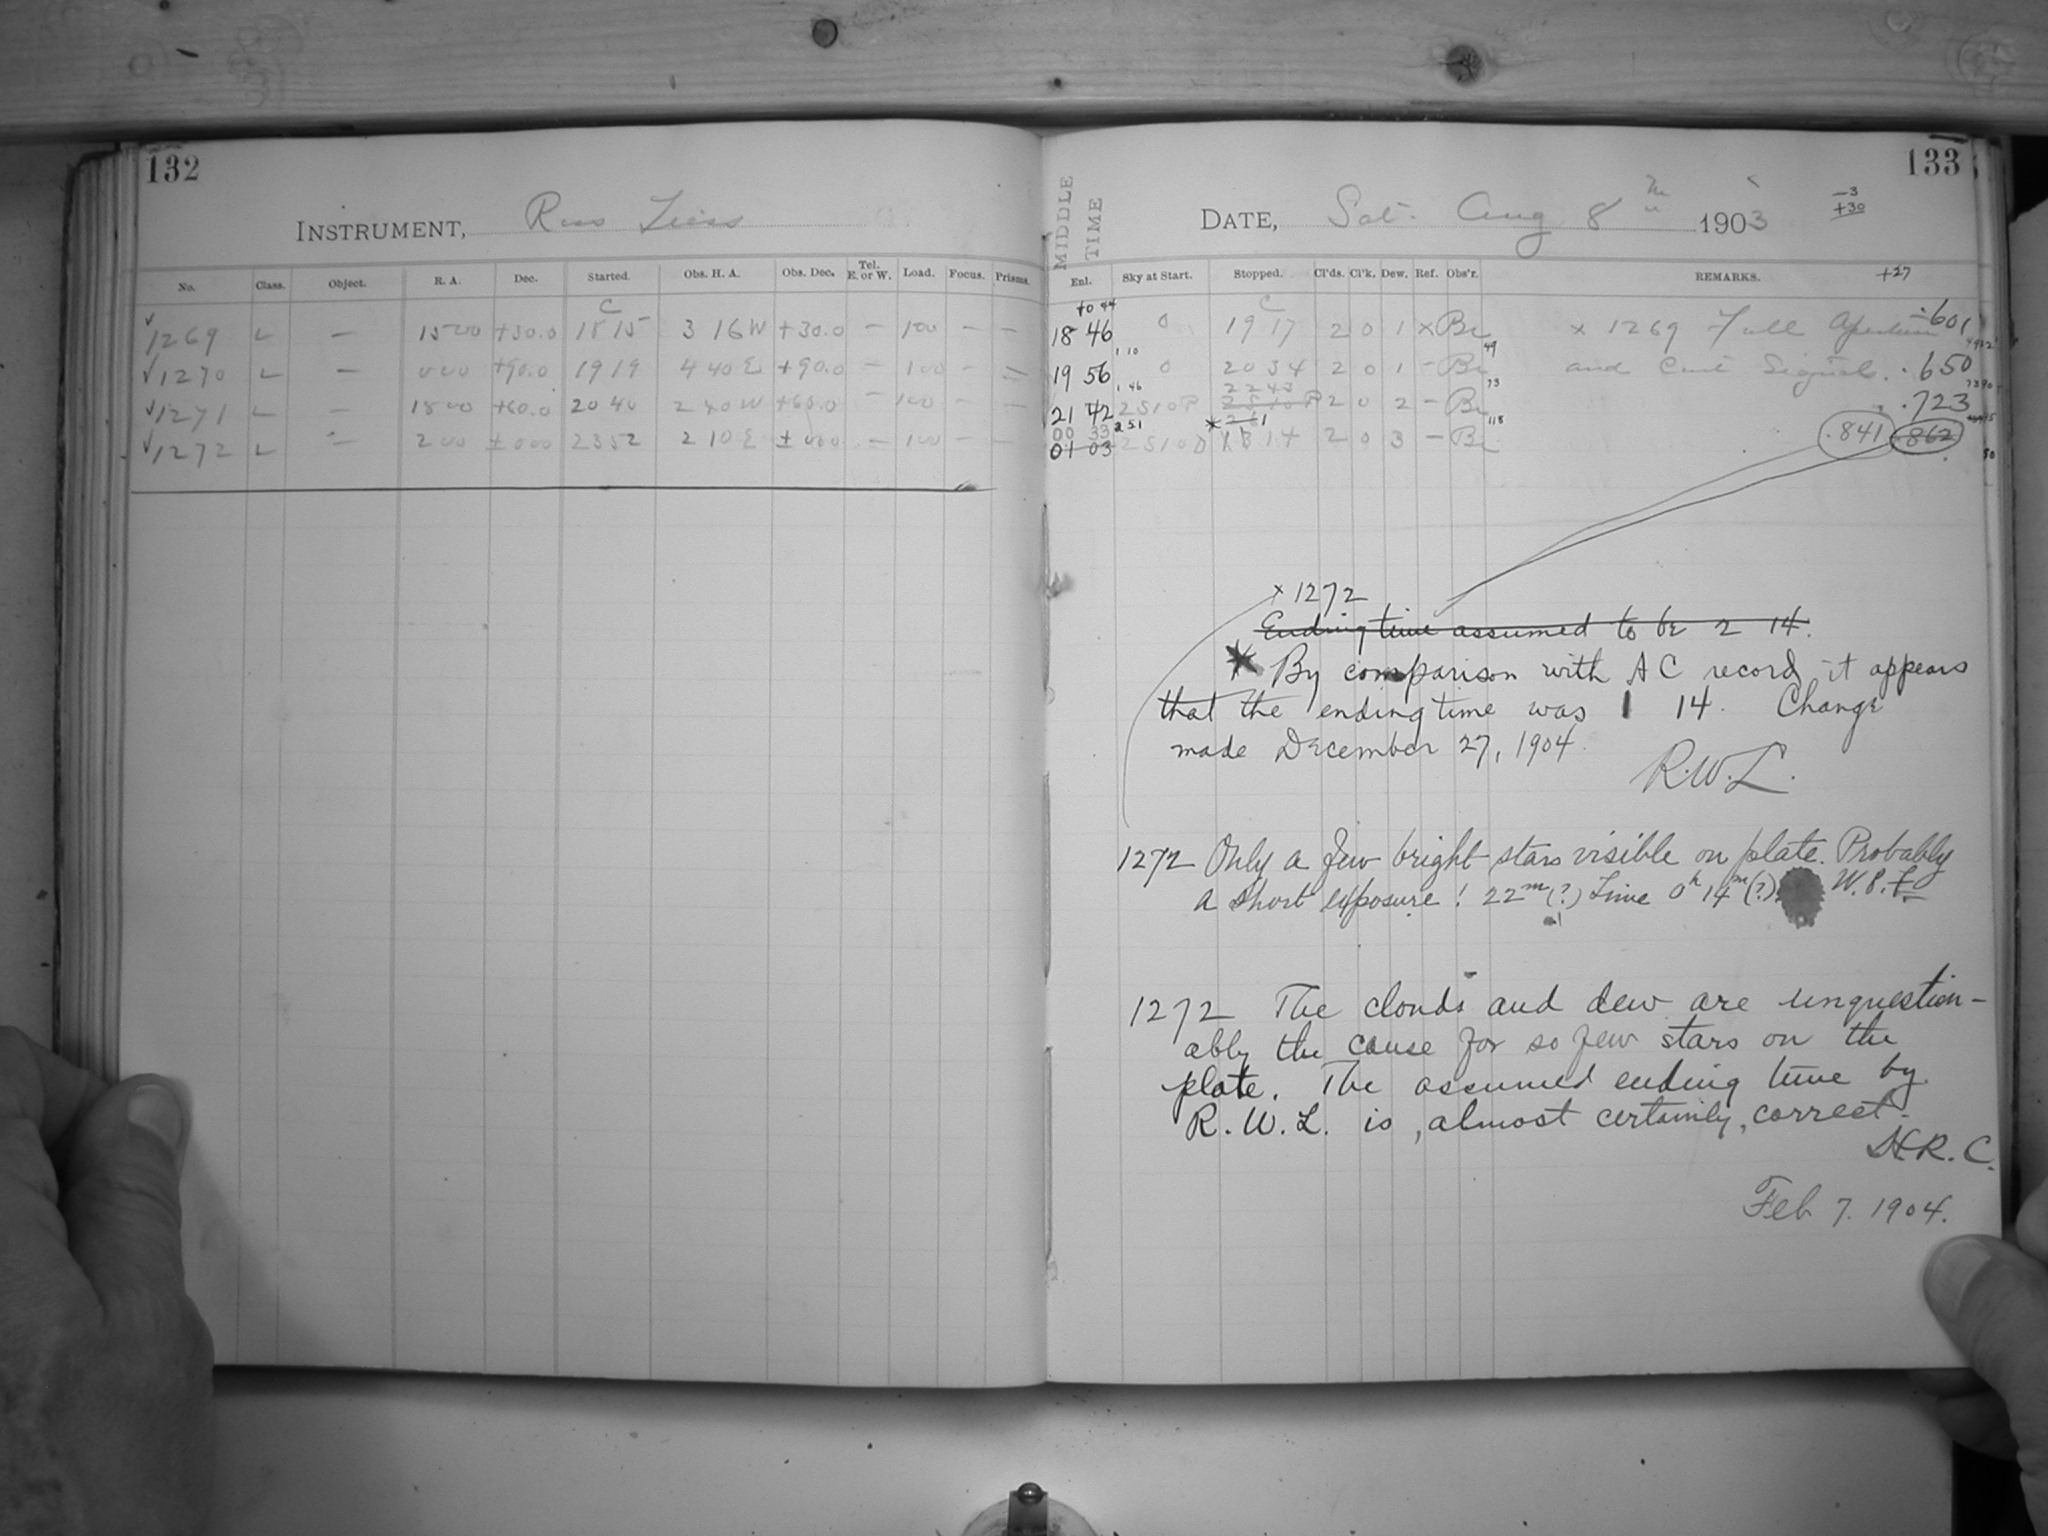 132
133
INSTRUMENT,
MIDDLE TIME
DATE, Sat. Aug 8 1903
-3
+30
No. Class. Object. R. A. Dec. Started. Obs. H. A. Obs. Dec. Tel. E. or W. Load. Focus. Prisms.
Enl. Sky at Start. Stopped. Cl'ds. Cl'k. Dew. Ref. Obs'r. REMARKS. +27
C
+0 44 C
√ 1269 L — 1500 +30.0 18 15 3 16 W +30.0 — 100 — —
18 46 0 19 17 2 0 1 × Br × 1269 Full Aperture .601
1 10 49
√ 1270 L — 000 +90.0 19 19 4 40 E +90.0 — 100 — —
19 56 0 20 34 2 0 1 - Br and Cent Signal. .650
1 46 22 43 73
√ 1271 L — 1800 +60.0 20 40 2 40 W +60.0 — 100 — —
21 42 2510P 2 0 2 - Br .723
2 51 118
√ 1272 L — 200 ±000 23 52 2 10 E ± 000 — 100 — —
00 33
01 03 14 2 0 3 - Br .841 .862
× 1272
Ending time assumed to be 2 14.
* By comparison with AC record it appears
that the ending time was 1 14. Change
made December 27, 1904.
R.W.L.
1272 Only a few bright stars visible on plate. Probably
a short exposure! 22m(?) Time 0h 14m(?). W.P.F.
1272 The clouds and dew are unquestion-
ably the cause for so few stars on the
plate. The assumed ending time by
R.W.L. is, almost certainly, correct.
H.R.C.
Feb 7. 1904.